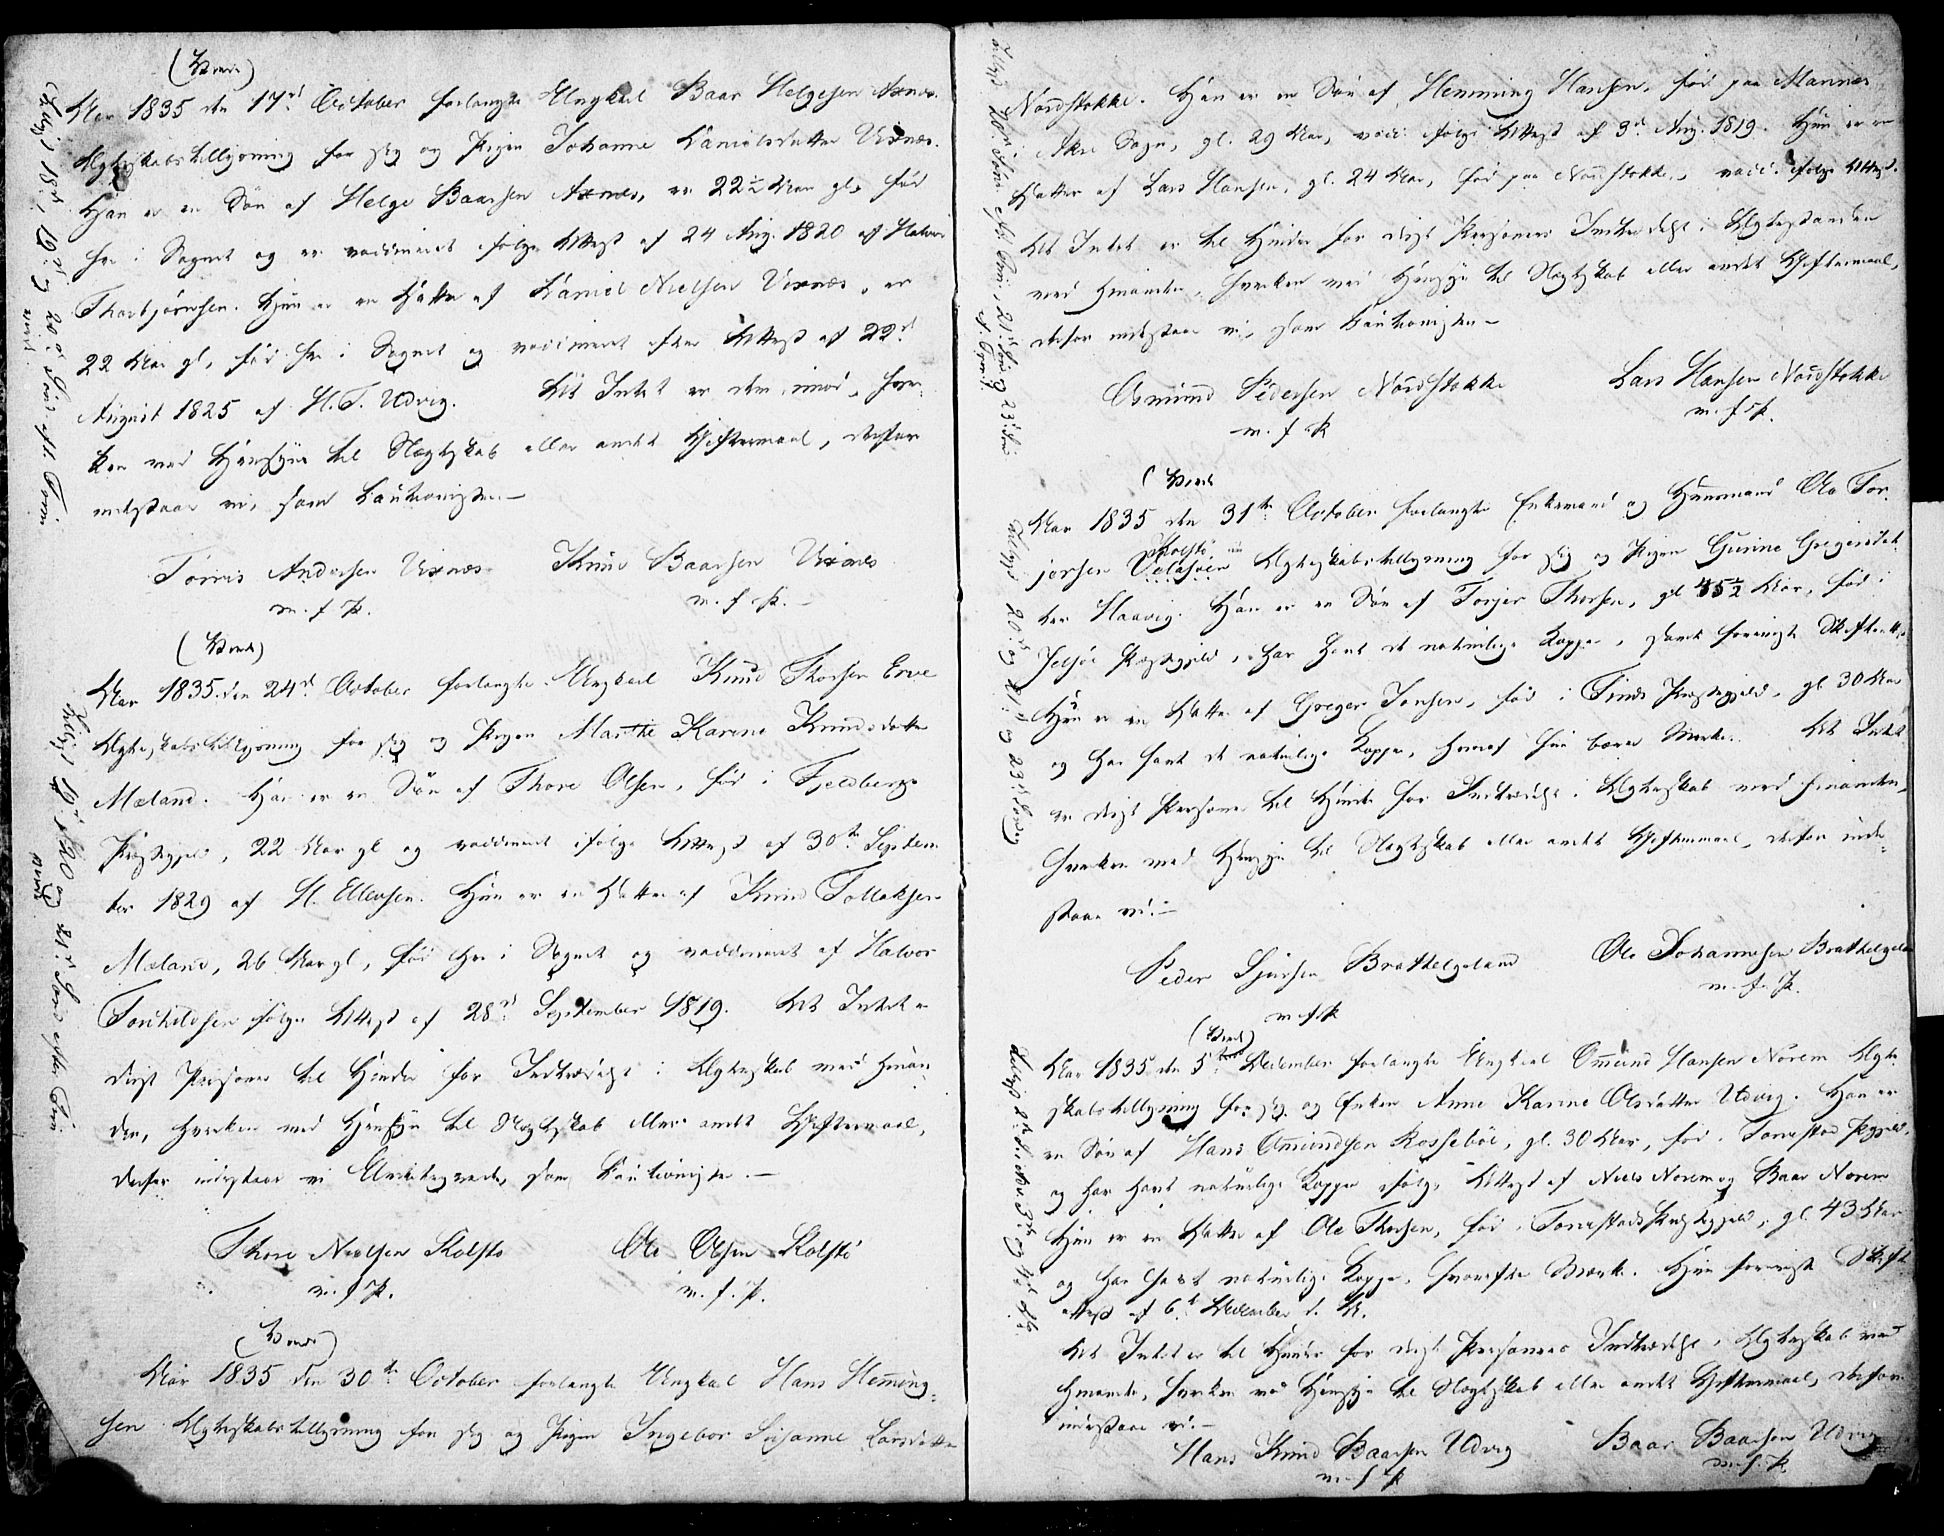 (Viede)
Aar 1835 den 17d October forlangte Ungkarl Baar Helgesen Axnes
Ægteskabstillysning for sig og Pigen Johanne Danielsdatter Vixnæs.
Han er en Søn af Helge Baarsen Axnes, er 22½ Aar gl, fød
her i Sognet og er vaccineret ifølge Attest af 24 Aug. 1820 af Halvor
Thorbjørnsen. Hun er en Datter af Daniel Nielsen Vixnæs, er
22 Aar gl, fød her i Sognet og vaccineret efter Attest af 22d
August 1825 af H. T. Udvig. At Intet er dem imod, hver-
ken med Hensyn til Slægtskab eller andet Giftermaal, derfor
indestaar vi, som Cautionister –
Tørris Andersen Vixnæs Knud Baarsen Vixnæs
m. f P. m. f. P. –
(Viede)
Aar 1835 den 24d October forlangte Ungkarl Knud Thorsen Erve
Ægteskabstillysning for sig og Pigen Marthe Karine Knudsdatter
Mæland. Han er en Søn af Thore Olsen, fød i Fjeldbergs
Præstegjeld, 22 Aar gl og vaccineret ifølge Attest af 30te Septem
ber 1829 af H. Ellevsen. Hun er en Datter af Knud Tollaksen
Mæland, 26 Aar gl, fød her i Sognet og vaccineret af Halvor
Torkildsen ifølge Attest af 28d September 1819. At Intet er
disse Personer til Hinder for Indtrædelse i Ægteskab med hinan-
den, hverken med Hensyn til Slægtskab eller andet Giftermaal,
derfor indestaar vi Undertegnede, som Cautionister. –
Thore Nielsen Kolstø Ole Olsen Kolstø
m. f P. m. f. P.
(Viede)
Aar 1835 den 30te October forlangte Ungkarl Hans Hemming-
sen Ægteskabstillysning for sig og Pigen Ingebor Susanne Larsdatter
Nordstokke. Han er en Søn af Hemming Hansen, fød paa Mannes
Akre Sogn, gl. 29 Aar, vacc. ifølge Attest af 3d Aug. 1819. Hun er en
Datter af Lars Hansen, gl. 24 Aar, fød paa Nordstokke, vacc. ifølge Attest.
At Intet er til Hinder for disse Personers Indtrædelse i Ægtestanden
med hinanden, hverken med Hensyn til Slægtskab eller andet Giftermaal,
derfor indestaar vi, som Cautionister –
Osmund Pedersen Nordstokke Lars Hansen Nordstokke
m. f P. m. f P.
(Viede
Aar 1835 den 31te October forlangte Enkemand og Huusmand Ole Tor-
Kolstø
jersen Ægteskabstillysning for sig og Pigen Gurine Gregersdat-
ter Haavig. Han er en Søn af Torjer Thorsen, gl 45½ Aar, fød i
Jelsøe Præstegjeld, har havt de naturlige Kopper, samt foreviist Skifteattest.
Hun er en Datter af Greger Jonsen, fød i Finds Præstegjeld, gl 30 Aar
og har havt de naturlige Kopper, hvoraf hun bærer Mærke. At Intet
er disse Personer til Hinder for Indtrædelse i Ægteskab med hinanden,
hverken med Hensyn til Slægtskab eller andet Giftermaal, derfor inde-
staar vi. –
Peder Sjursen Brathelgeland Ole Johannesen Brathelgeland
m. f. P. m. f. P.
(Viede)
Aar 1835 den 5te December forlangte Ungkarl Omund Hansen Norem Ægte-
skabstillysning for sig og Enken Anne Karine Olsdatter Udvig. Han er
en Søn af Hans Omundsen Rossebøe, gl. 30 Aar, fød i Torvestad Pgjeld,
og har havt naturlige Kopper ifølge Attest af Niels Norem og Baar Norem
Hun er en Datter af Ole Thorsen, fød i Torvestads Præstegjeld, gl. 43 Aar
og har havt naturlige Kopper, hvorefter Mærke. Hun foreviiste Skifte
attest af 6te December d. A.
At Intet er til Hinder for disse Personers Indtrædelse i Ægteskab med
hinanden, hverken med Hensyn til Slægtskab eller andet Giftermaal, derfor
indestaar vi. –
Hans Knud Baarsen Udvig Baar Baarsen Udvig
m. f P. m. f. P.